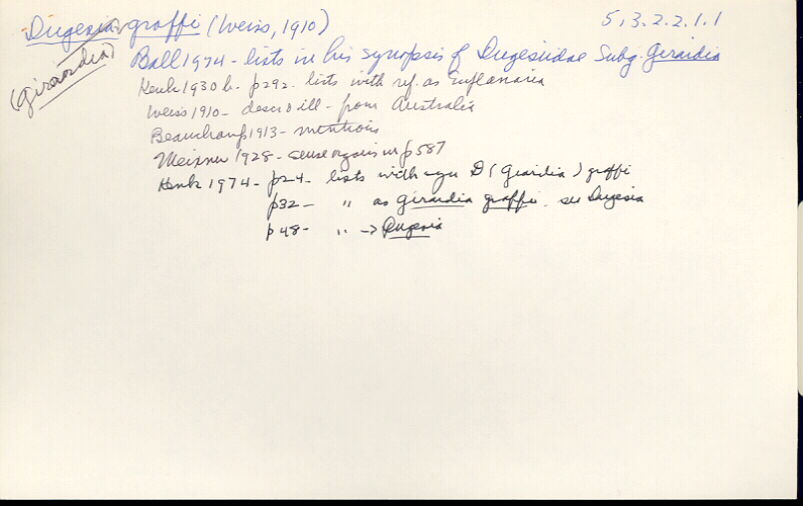 Dugesia graffi (Weiss, 1910) 5.3.2.2.1.1
(Girardia)
Ball 1974 - lists in his synopsis of Dugesiidae Subg. Girardia
Kenk 1930 b - p292. lists with ref. as Euplanaria
Weiss 1910 - descr & ill - from Australia
Beauchamp 1913 - mentions
Meixner 1928 - sense organs in p587
Kenk 1974 - p24 - lists with syn D (Girardia) graffi
p32 - " as Girardia graffi. see Dugesia
p48 - " -> Dugesia